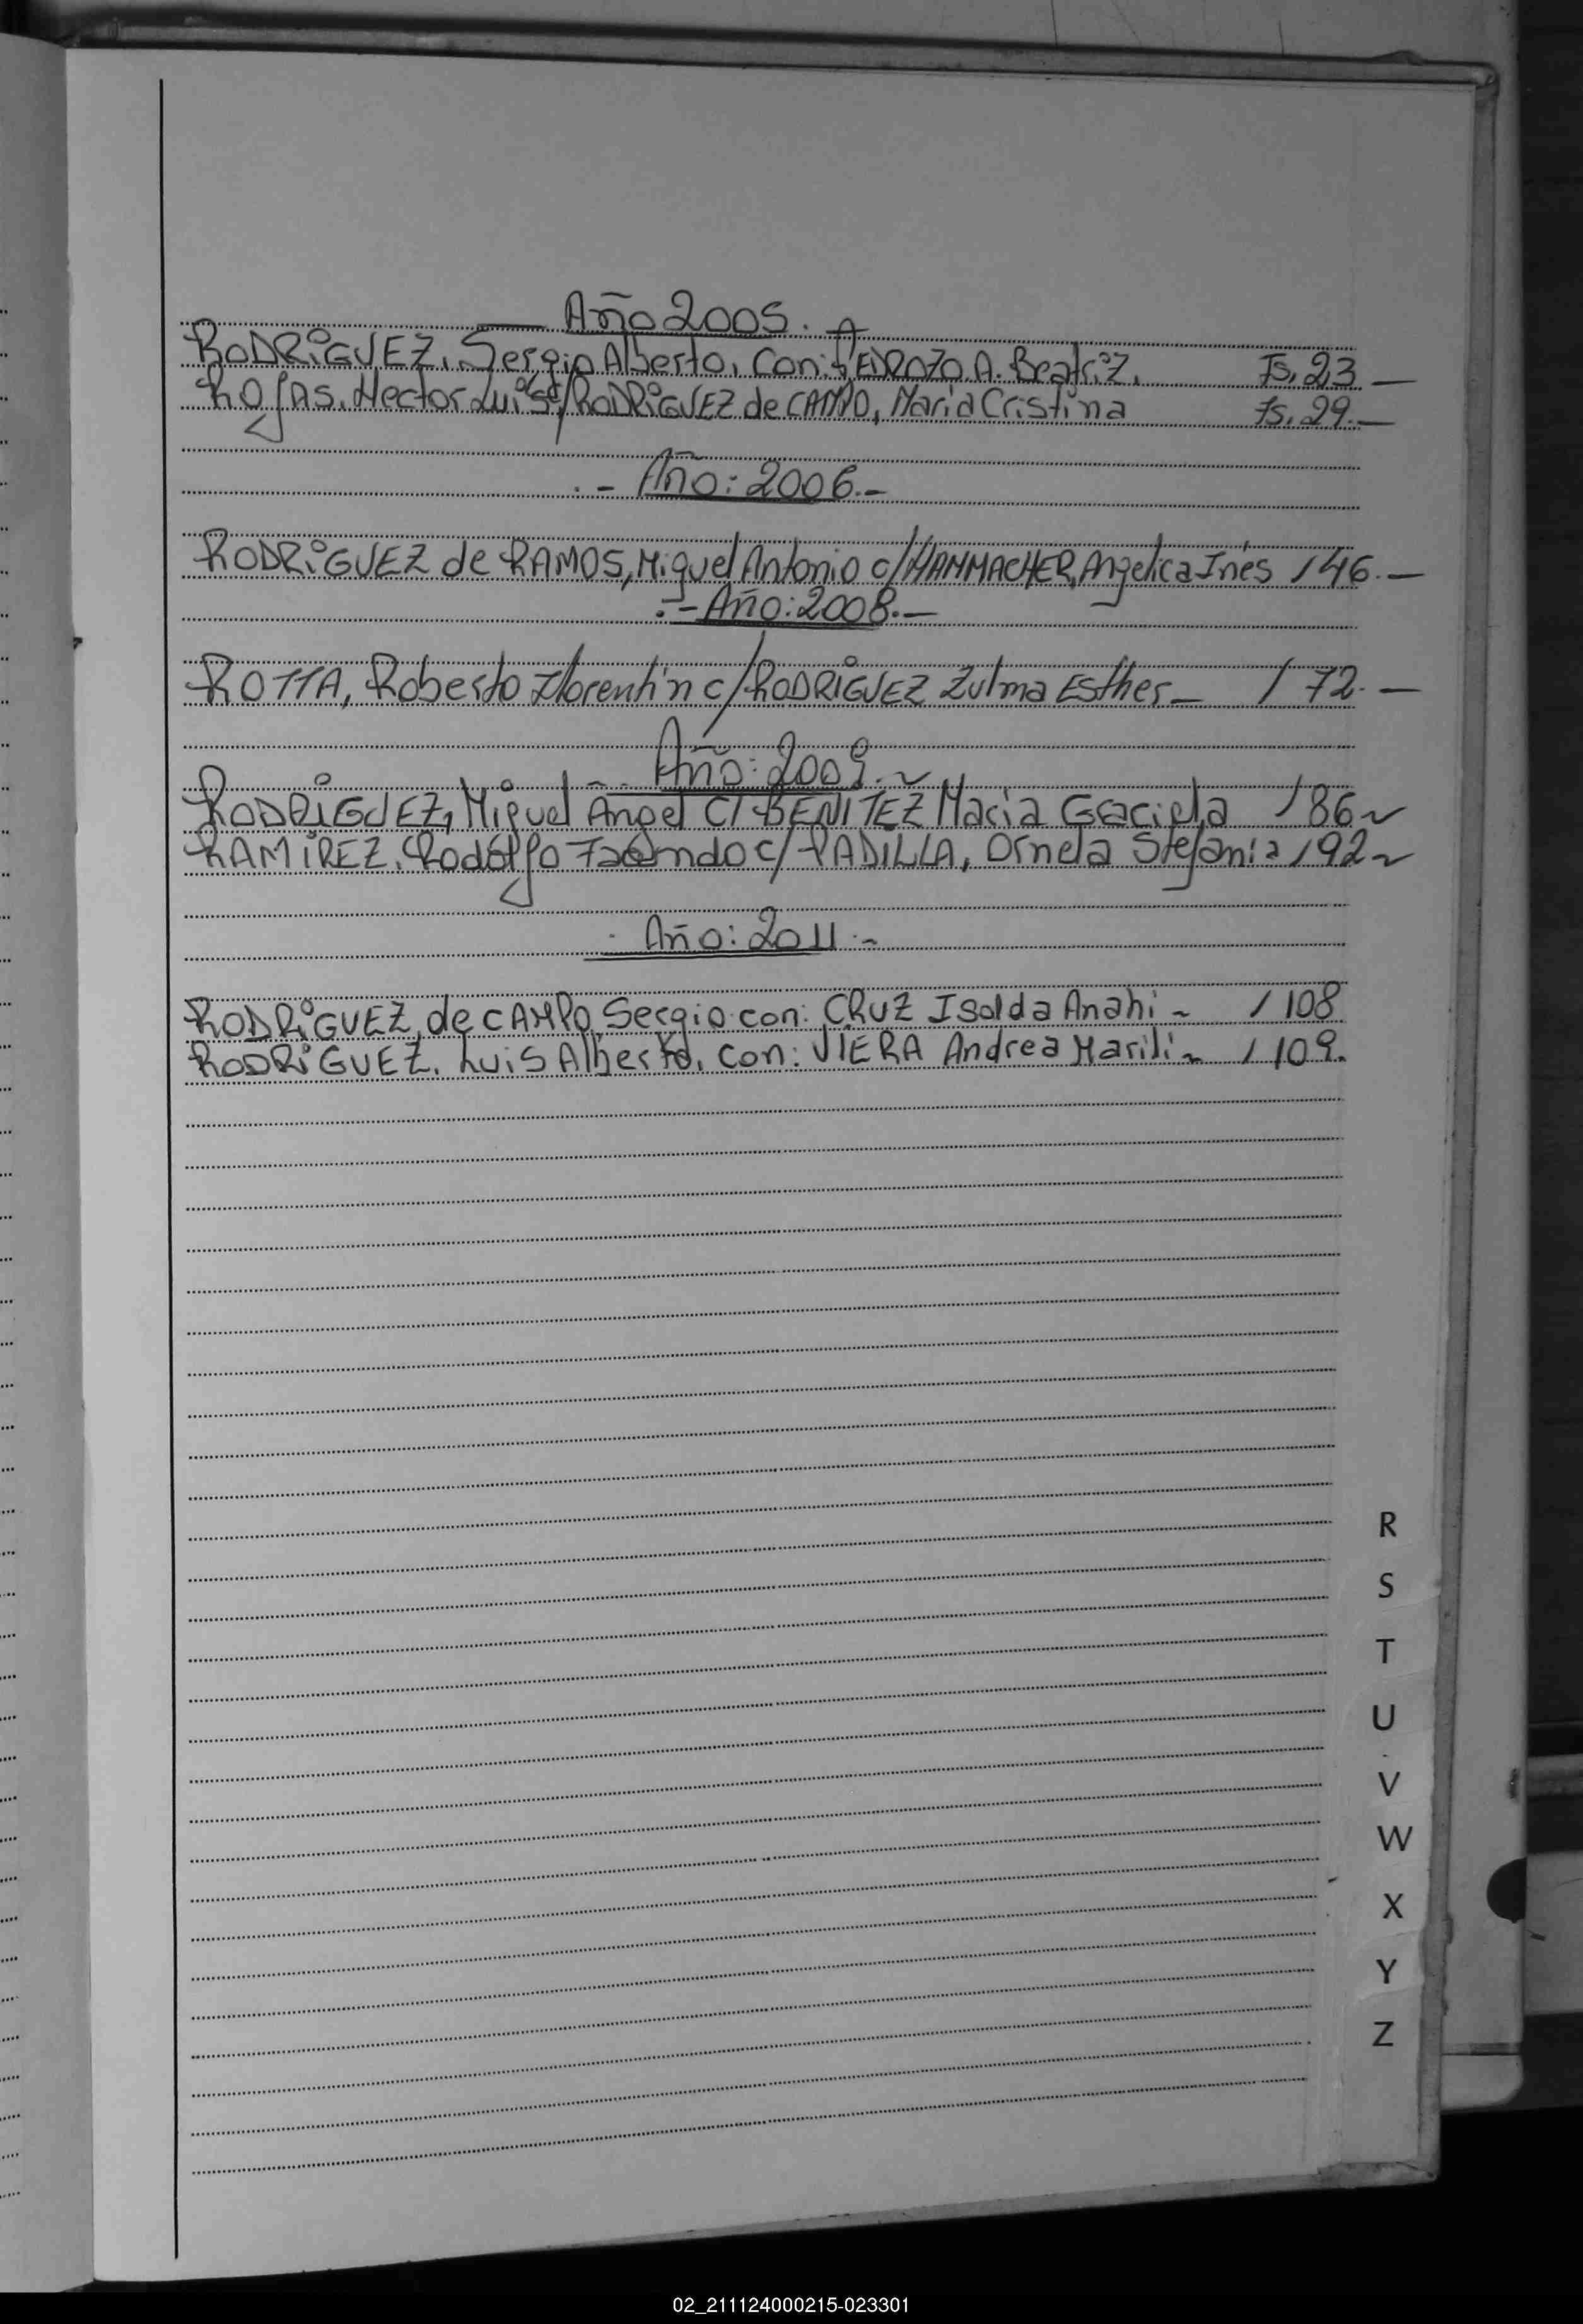 Año 2005.
RODRiGUEZ, Sergio Alberto, Con: PEDROZO A. Beatriz. Fs. 23
ROJAS. Hector Luis c/RODRiGUEZ de CAMPO, Maria Cristina Fs. 29.
.- Año: 2006.-
RODRiGUEZ de RAMOS, Miguel Antonio c/HAMMACHER, Angelica Inés /46.-
.- Año: 2008.-
ROTTA, Roberto Florentin c/RODRiGUEZ Zulma Esther- /72.-
Año: 2009.-
RODRiGUEZ, Miguel Ángel C/ BENITEZ Maria Graciela /86-
RAMIREZ, Rodolfo Facundo c/ PADILLA, Ornela Stefania /92-
Año: 2011.-
RODRiGUEZ de CAMPO, Sergio con: CRUZ Isolda Anahi - / 108
RODRiGUEZ. Luis Alberto, con: VIERA Andrea Marili- / 109.
R
S
T
U
V
W
X
Y
Z
02_211124000215-023301